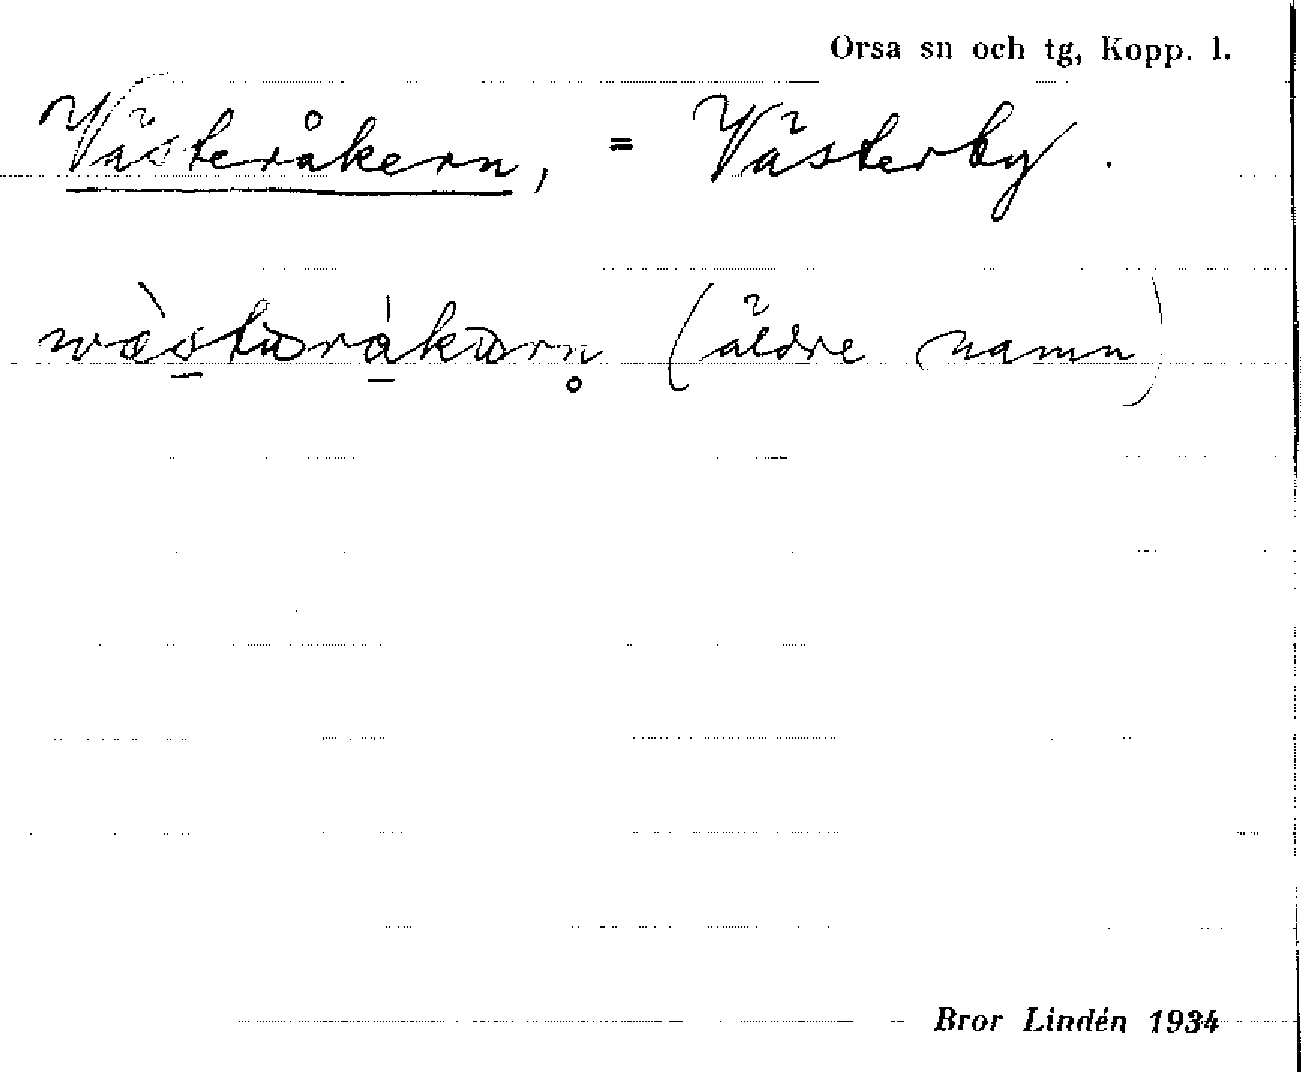 Orsa sn och tg, Kopp. l.
Västeråkern, = Västerby.
(äldre namn)
Bror Lindén 1934